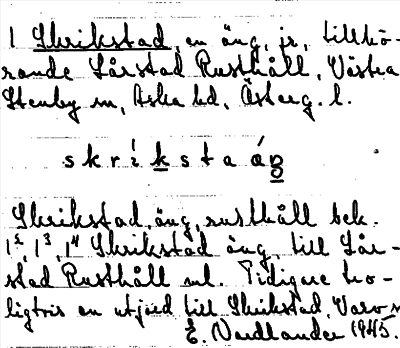 1 Skrikstad, en äng, jr, tillhö-
rande Lårstad Rusthåll, Västra
Stenby sn, Aska hd, Österg. l.
s k r i k s t a
Skrikstad, äng, rusthåll bek.
1², 1³, 1⁴ Skrikstad äng, till Lår-
stad Rusthåll ml. Tidigare tro-
ligtvis en utjord till Skrikstad, Varv sn
E. Nordlander 1945.